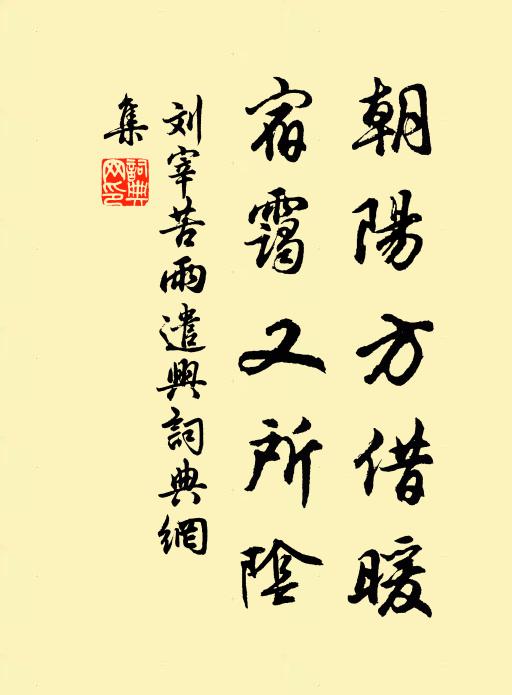 朝陽方借暖
宿靄又所陰
刘宰苦雨遣興詞典網
集
詞典網印